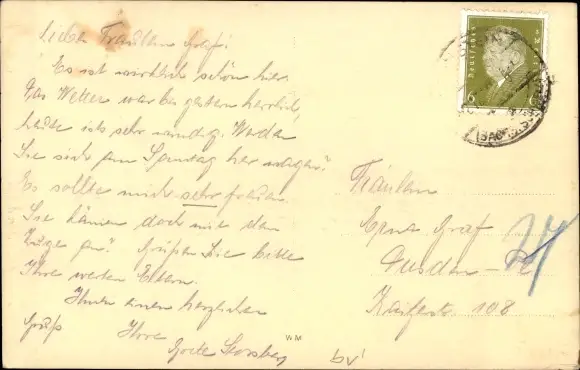 Liebes Fräulein Graf!
Es ist wirklich schön hier.
Das Wetter war bis gestern herrlich,
heute ists sehr windig. Werden
Sie sich am Sonntag her wagen?
Es sollte mich sehr freuen.
Sie kämen doch mit dem
Zuge an? Grüßen Sie bitte
Ihre werten Eltern.
Ihnen einen herzlichen
Gruß Ihre
WM
Deutsches Reich
6 6
Fräulein
Erna Graf
Dresden-
Kaiserstr. 108